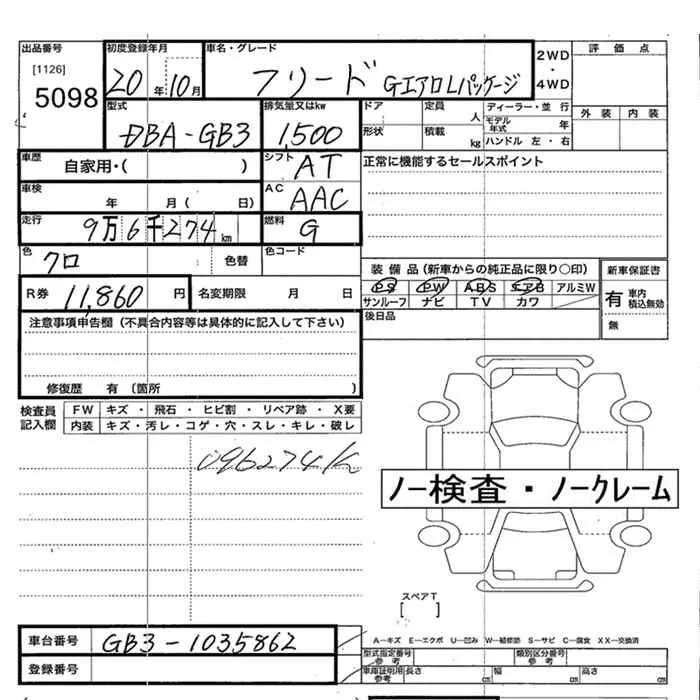 出品番号 初度登録年月 車名・グレード 2WD・4WD 評価点
[1126]
5098
20年10月 フリード GエアロLパッケージ
外装 内装
型式 排気量又はkw ドア 定員 人 ディーラー・並行
DBA-GB3 1,500 形状 積載 kg モデル年式 年
ハンドル 左・右
車歴 自家用・( ) シフト AT 正常に機能するセールスポイント
車検 年 月( 日) AC AAC
走行 9万6千274km 燃料 G
色 クロ 色替 色コード
装備品(新車からの純正品に限り○印) 新車保証書
R券 11,860円 名変期限 月 日
PS PW ABS エアB アルミW
サンルーフ ナビ TV カワ
有 車内積込無効
無
後日品
注意事項申告欄(不具合内容等は具体的に記入して下さい)
修復歴 有(箇所 )
検査員記入欄 FW キズ・飛石・ヒビ割・リペア跡・X要
内装 キズ・汚レ・コゲ・穴・スレ・キレ・破レ
096274K
ノー検査・ノークレーム
スペアT
[ ]
車台番号 GB3-1035862
A―キズ E―エクボ U―凹み W―補修跡 S―サビ C―腐食 XX―交換済
型式指定番号 参考 類別区分番号 参考
登録番号
車庫証明用参考 長さ cm 幅 cm 高さ cm